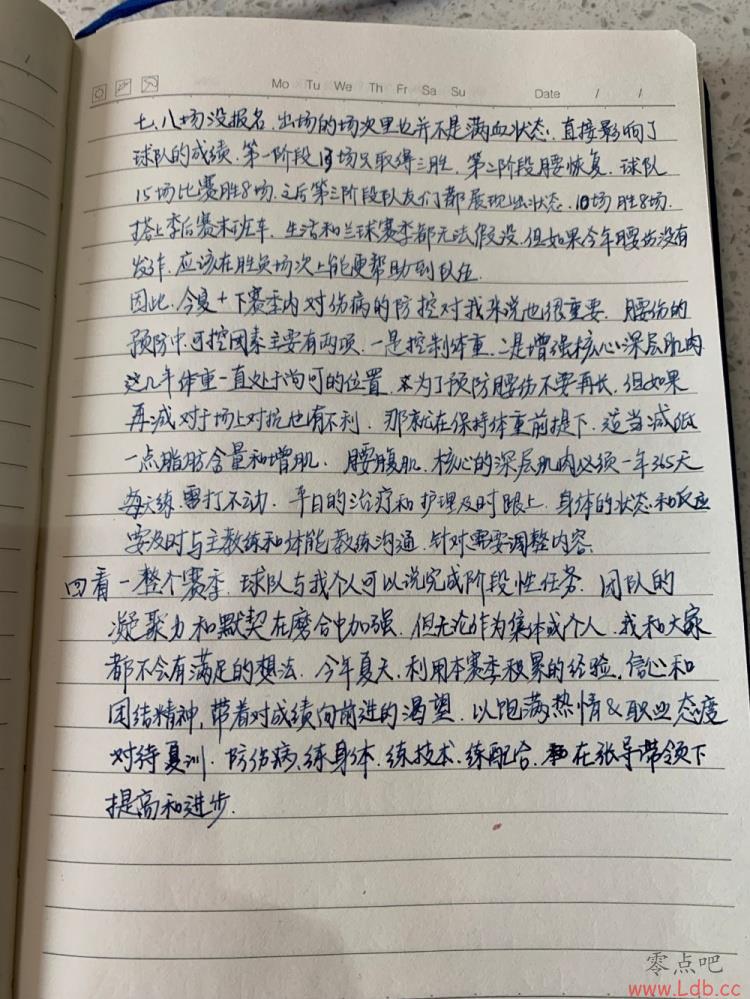 Mo Tu We Th Fr Sa Su Date / /
七、八场没报名.出场的场次里也并不是满血状态.直接影响了
球队的成绩.第一阶段13场只取得三胜.第二阶段腰恢复.球队
15场比赛胜8场.之后第三阶段队友们都展现出状态.10场胜8场.
搭上季后赛末班车.生活和兰球赛季都无法假设.但如果今年腰伤没有
发作.应该在胜负场次上能更帮助到队伍.
因此.今夏+下赛季内对伤病的防控对我来说也很重要.腰伤的
预防中.可控因素主要有两项.一是控制体重.二是增强核心深层肌肉
这几年体重一直处于尚可的位置.为了预防腰伤不要再长.但如果
再减对于场上对抗也有不利.那就在保持体重前提下.适当减低
一点脂肪含量和增肌.腰腹肌.核心的深层肌肉必须一年365天
每天练.雷打不动.平日的治疗和护理及时跟上.身体的状态和反应
要及时与主教练和体能教练沟通.针对需要调整内容.
四看一整个赛季.球队与我个人可以说完成阶段性任务.团队的
凝聚力和默契在磨合中加强.但无论作为集体或个人.我和大家
都不会有满足的想法.今年夏天.利用本赛季积累的经验.信心和
团结精神,带着对成绩向前进的渴望.以饱满热情&职业态度
对待夏训.防伤病、练身体.练技术.练配合.在张导带领下
提高和进步.
零点吧
www.Ldb.cc